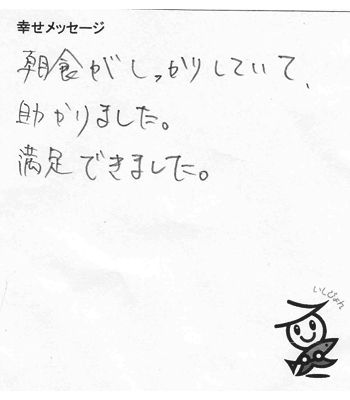 幸せメッセージ
朝食がしっかりしていて、
助かりました。
満足できました。